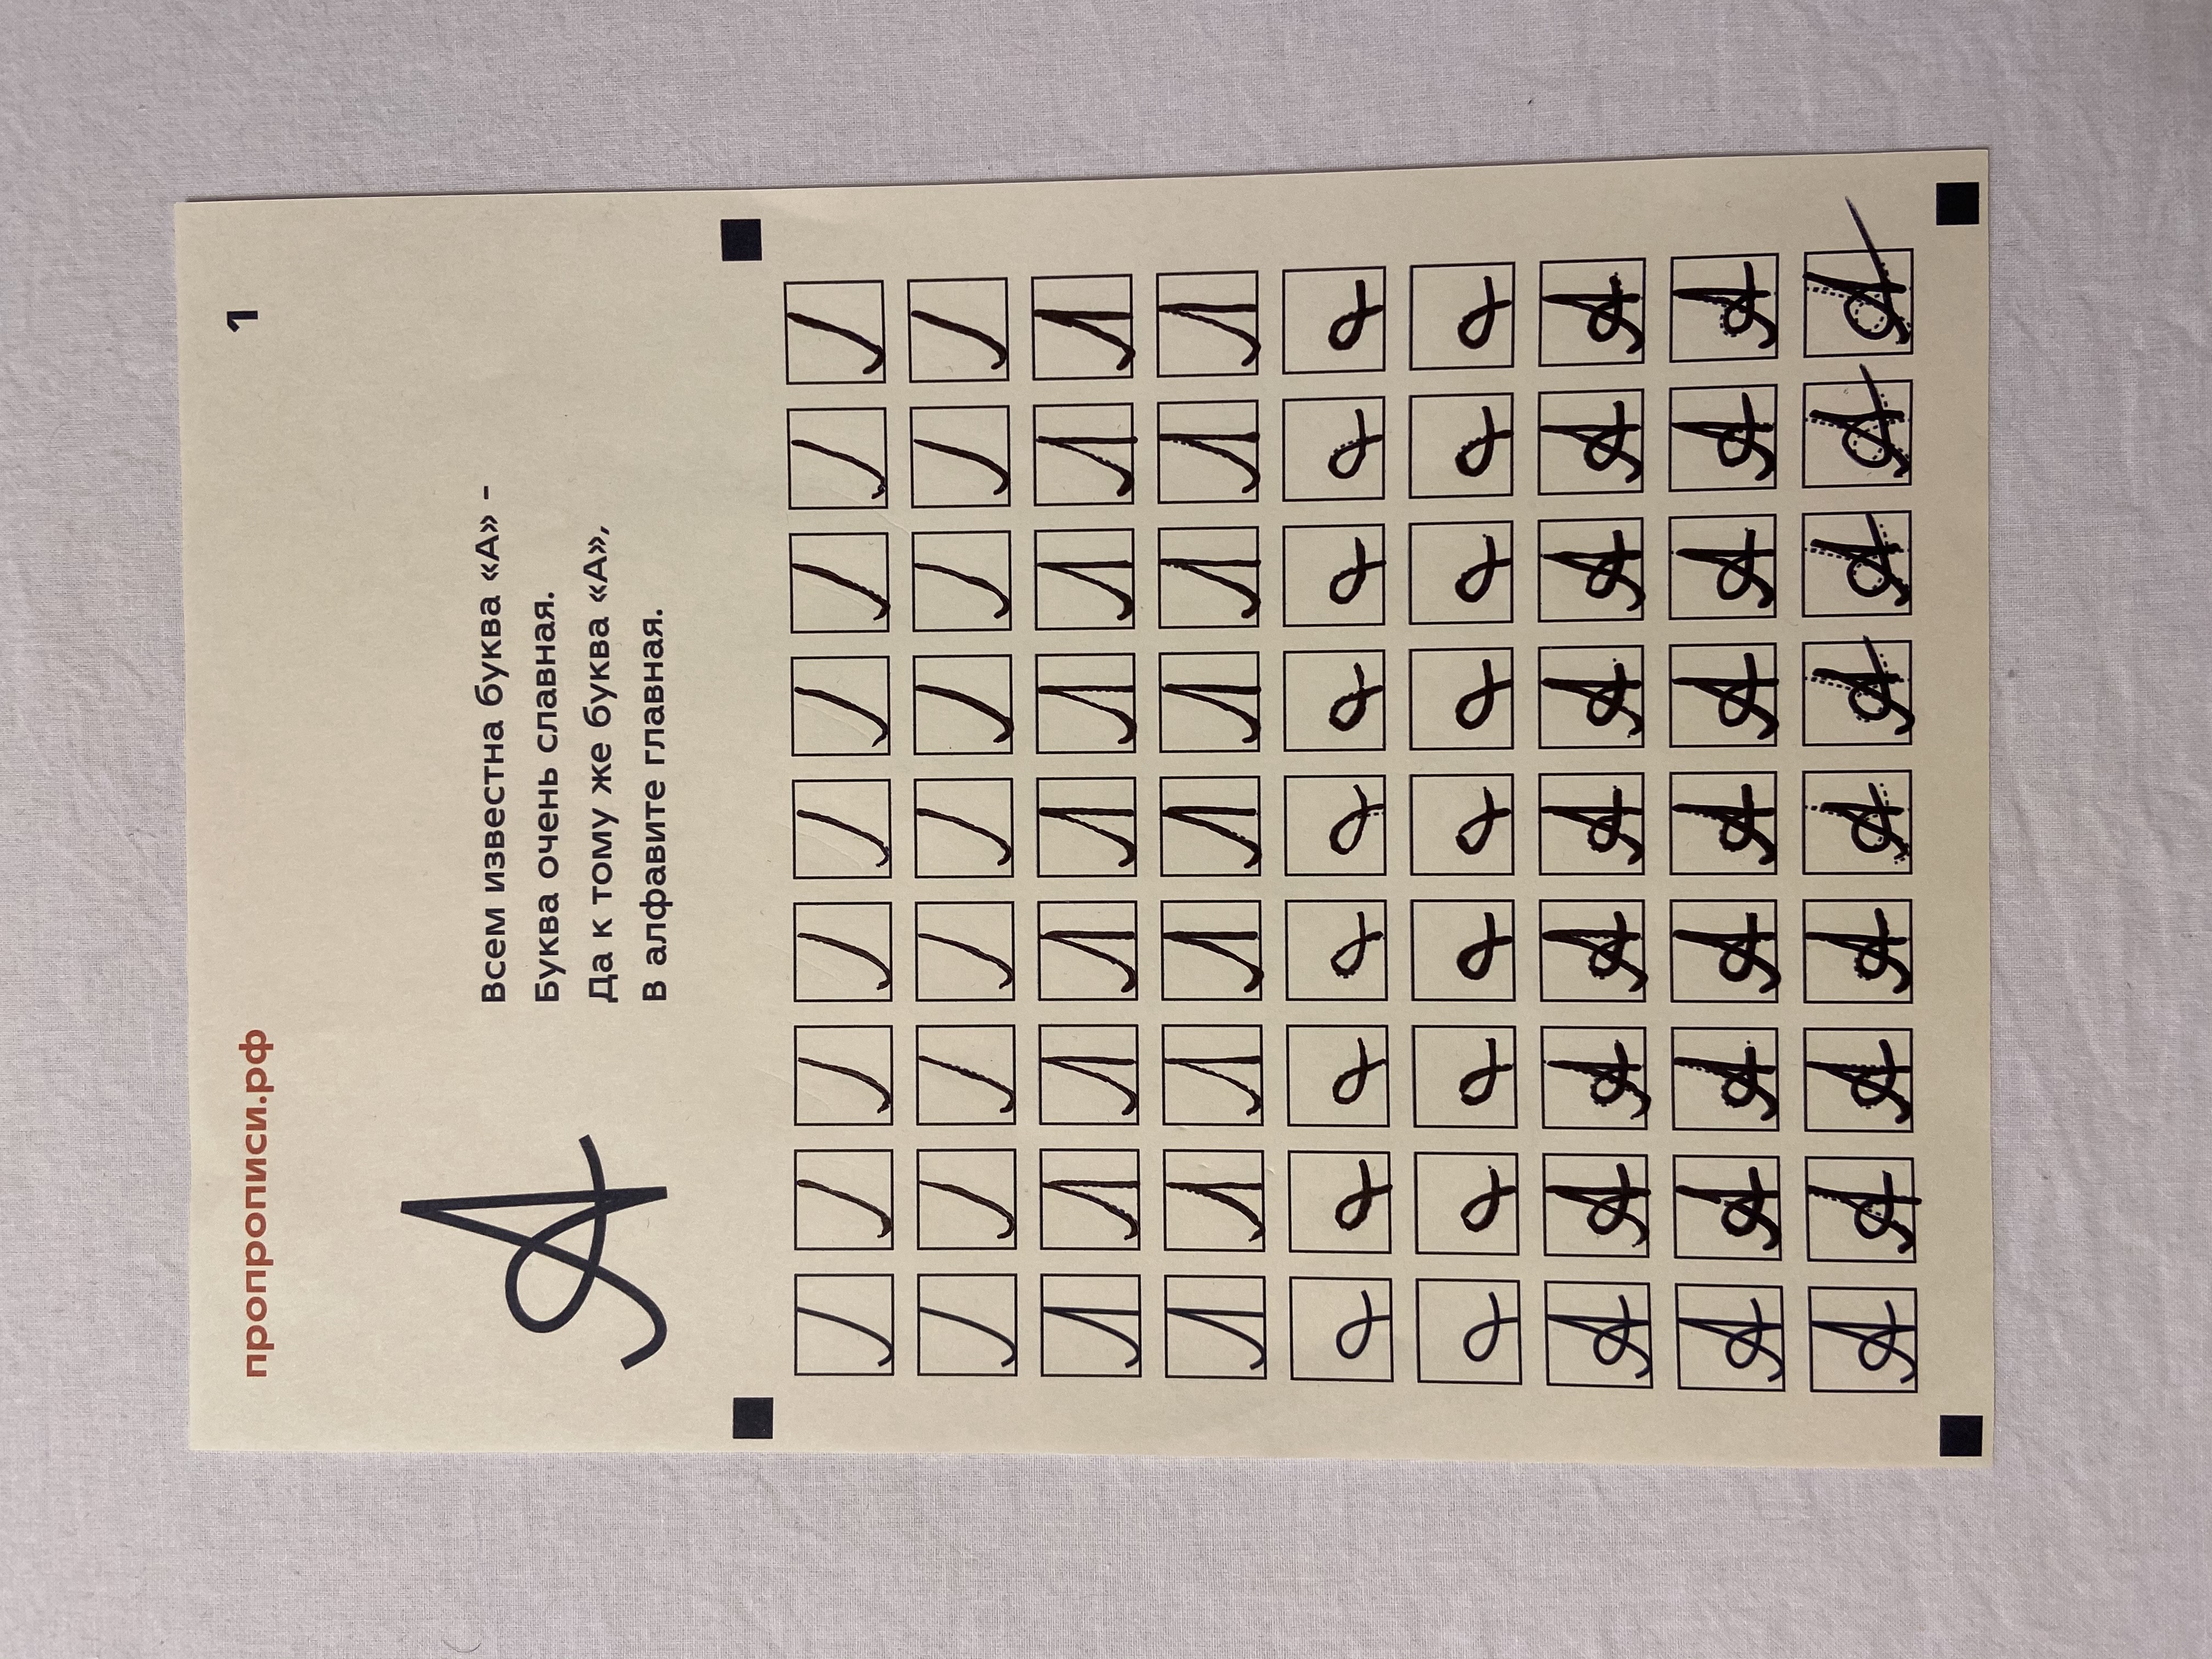 пропрописи.рф
1
А
Всем известна буква «А» -
Буква очень славная.
Да к тому же буква «А»,
В алфавите главная.
А А А А А А А А А
А А А А А А А А А
А А А А А А А А А